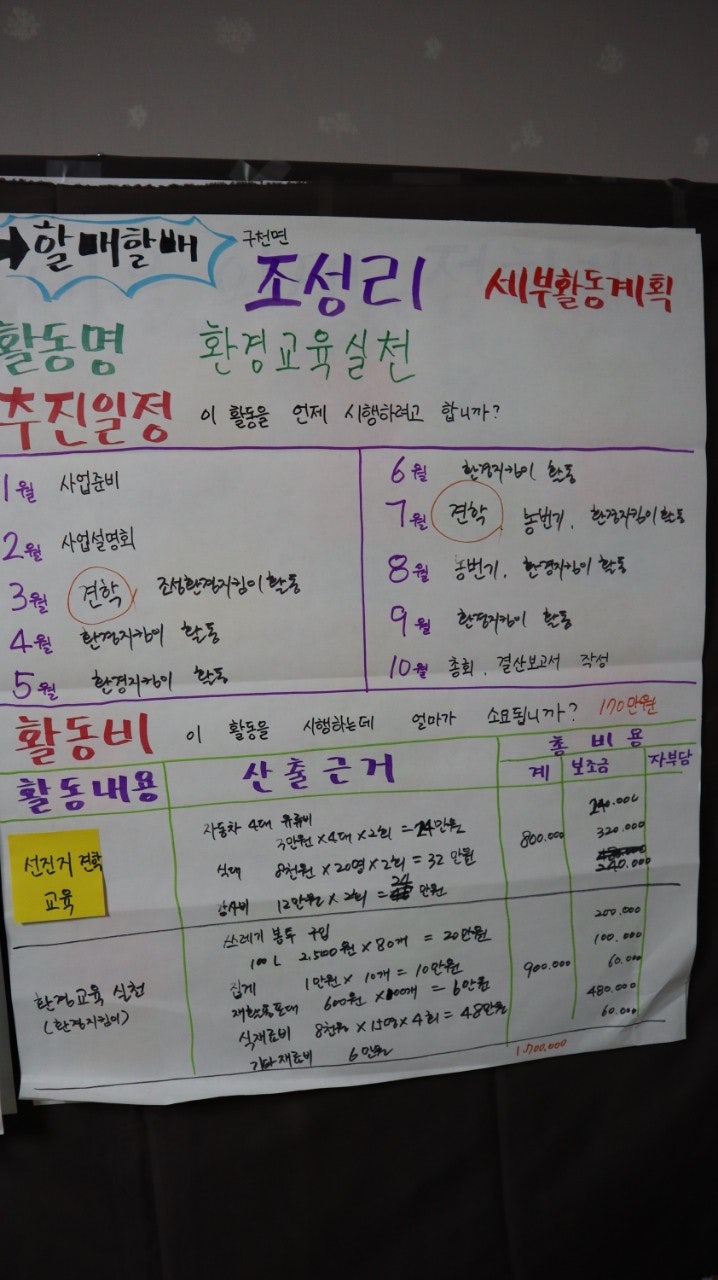 할매할배
구천면
조성리 세부활동계획
활동명 환경교육실천
추진일정 이 활동을 언제 시행하려고 합니까?
1월 사업준비
2월 사업설명회
3월 견학, 조성환경지킴이 활동
4월 환경지킴이 활동
5월 환경지킴이 활동
6월 환경지킴이 활동
7월 견학, 농번기, 환경지킴이 활동
8월 농번기, 환경지킴이 활동
9월 환경지킴이 활동
10월 총회, 결산보고서 작성
활동비 이 활동을 시행하는데 얼마가 소요됩니까? 170만원
활동내용 산출근거 총 비용
계 보조금 자부담
선진지 견학
교육
자동차 4대 유류비
3만원×4대×2회=24만원 240.000
식대 8천원×20명×2회=32만원 800.000 320.000
강사비 12만원×2회=24만원 240.000
환경교육 실천
(환경지킴이)
쓰레기 봉투 구입
100L 2.500원×80개=20만원 200.000
집게 1만원×10개=10만원 100.000
재활용포대 600원×100개=6만원 900.000 60.000
식재료비 8천원×15명×4회=48만원 480.000
기타재료비 6만원 60.000
1.700.000